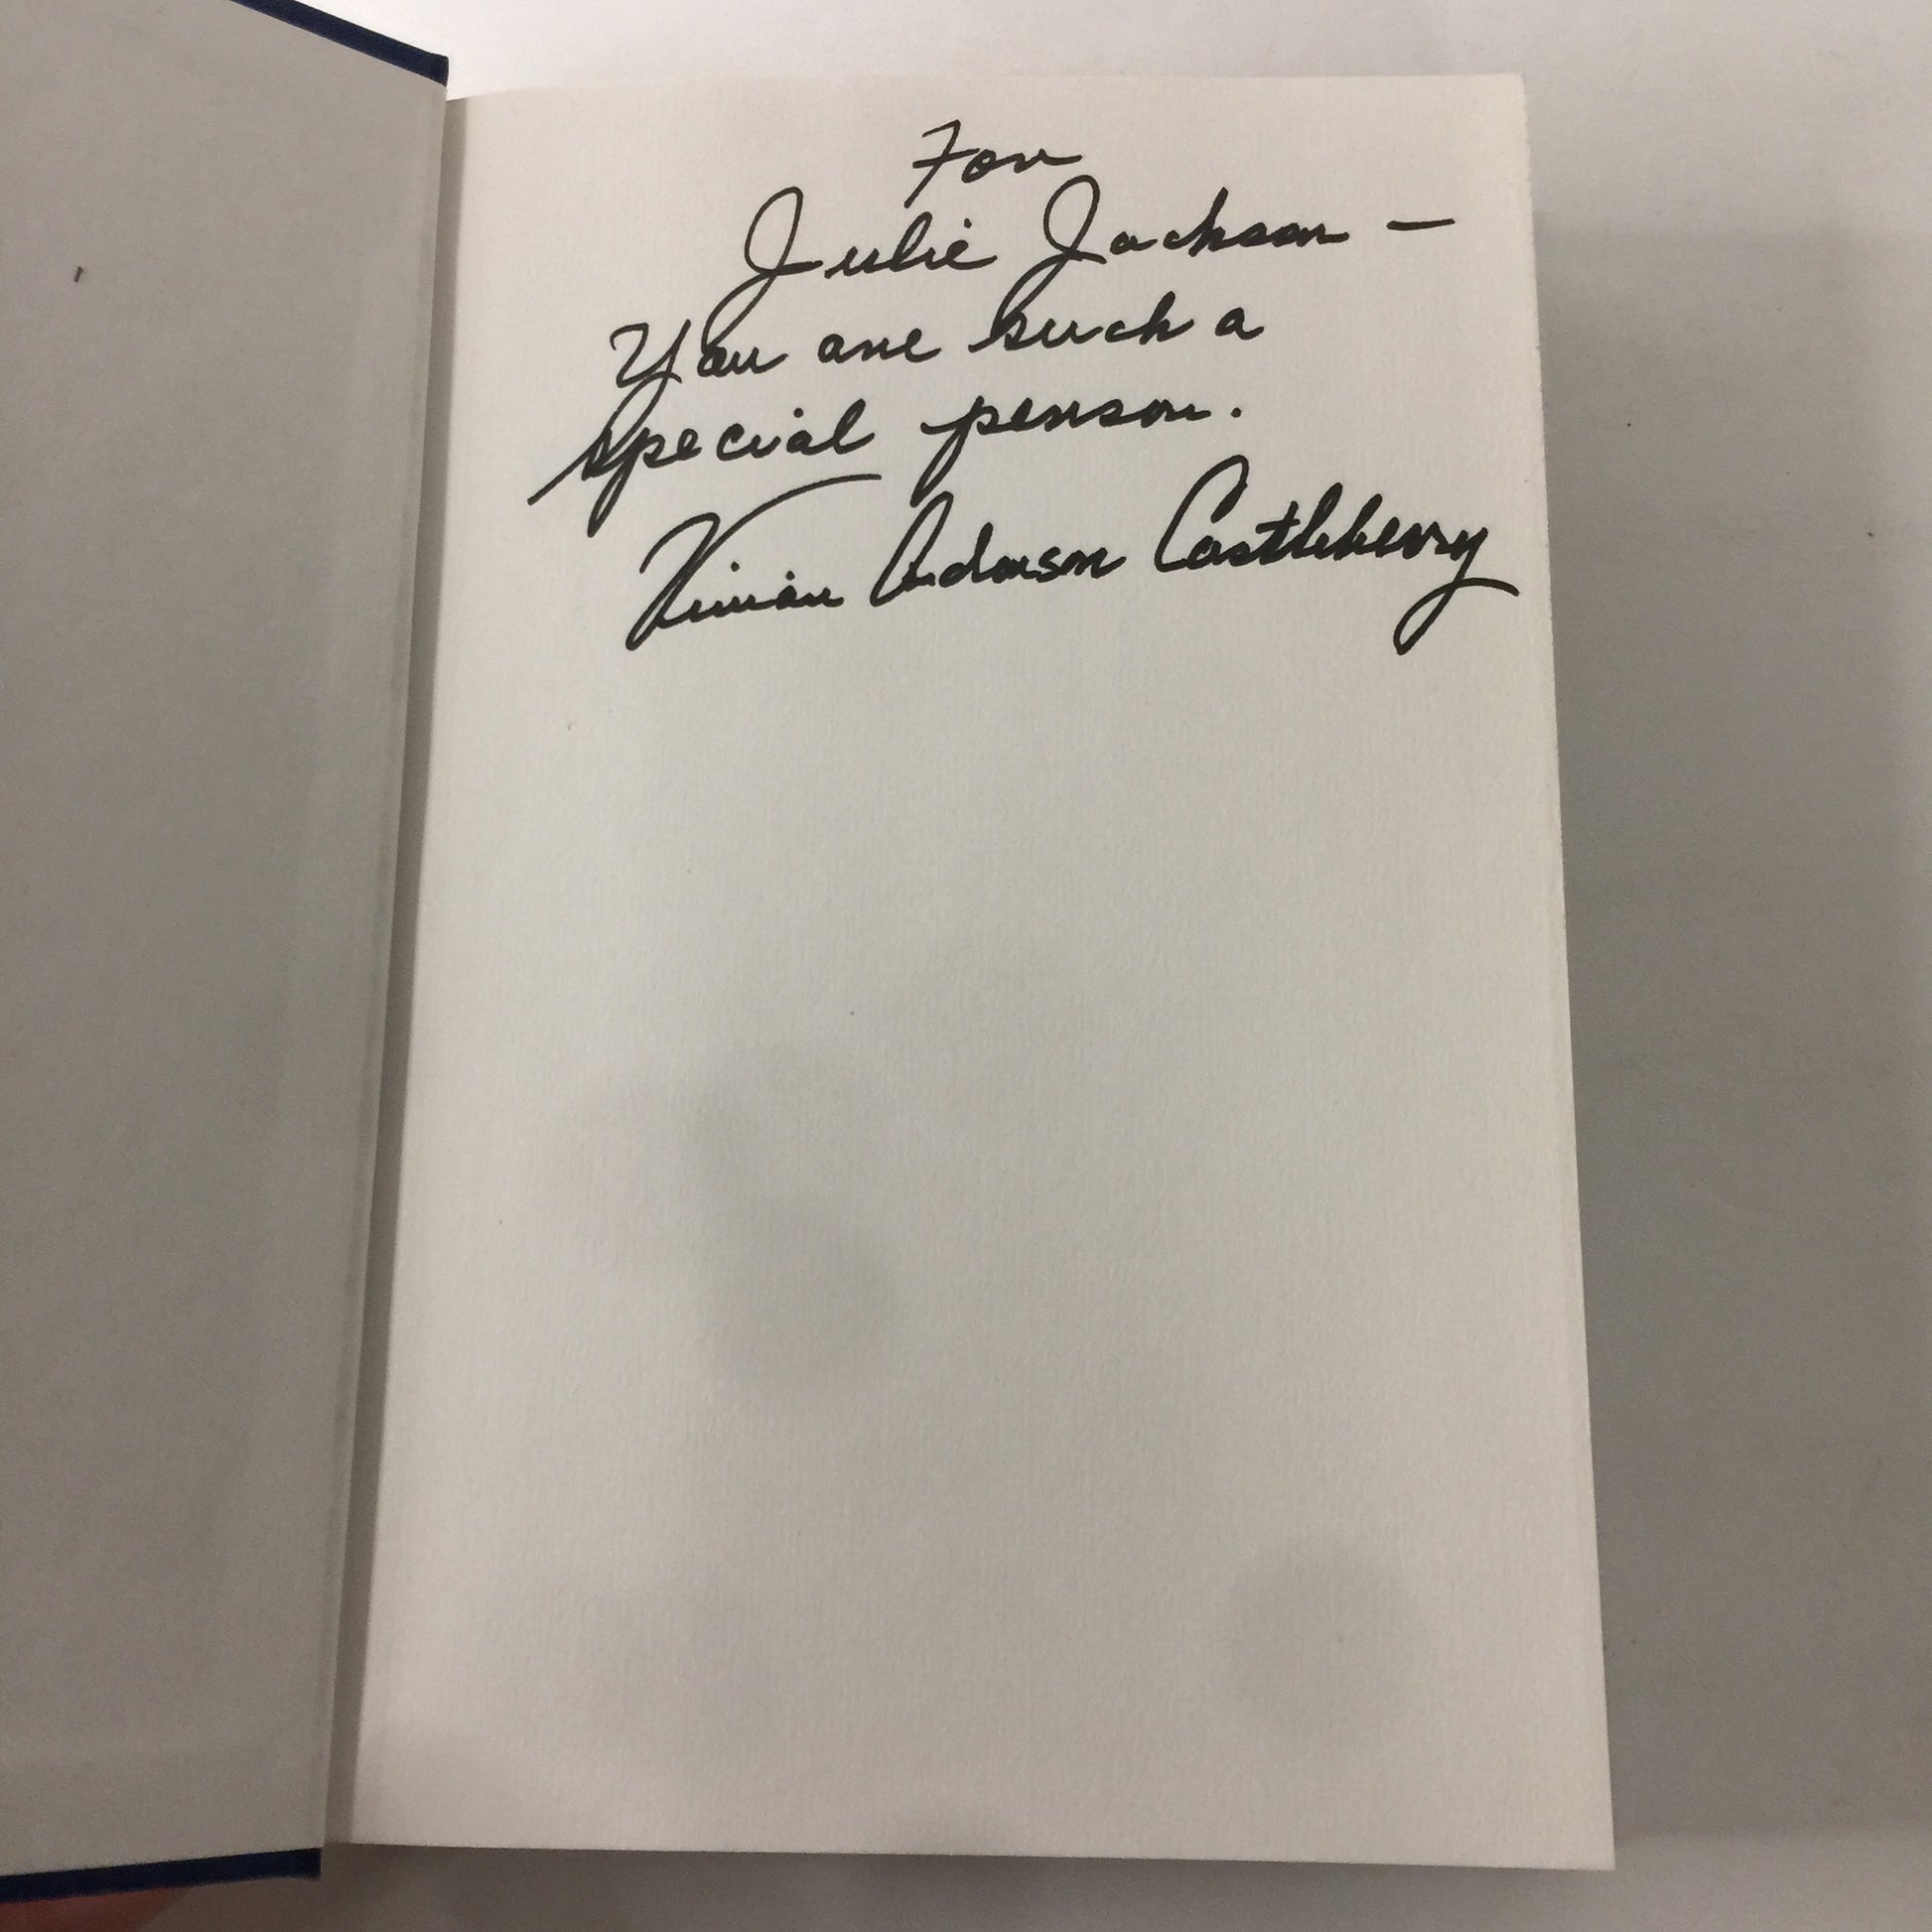 For
Julie Jackson —
You are such a
special person.
Vivian Anderson Castleberry